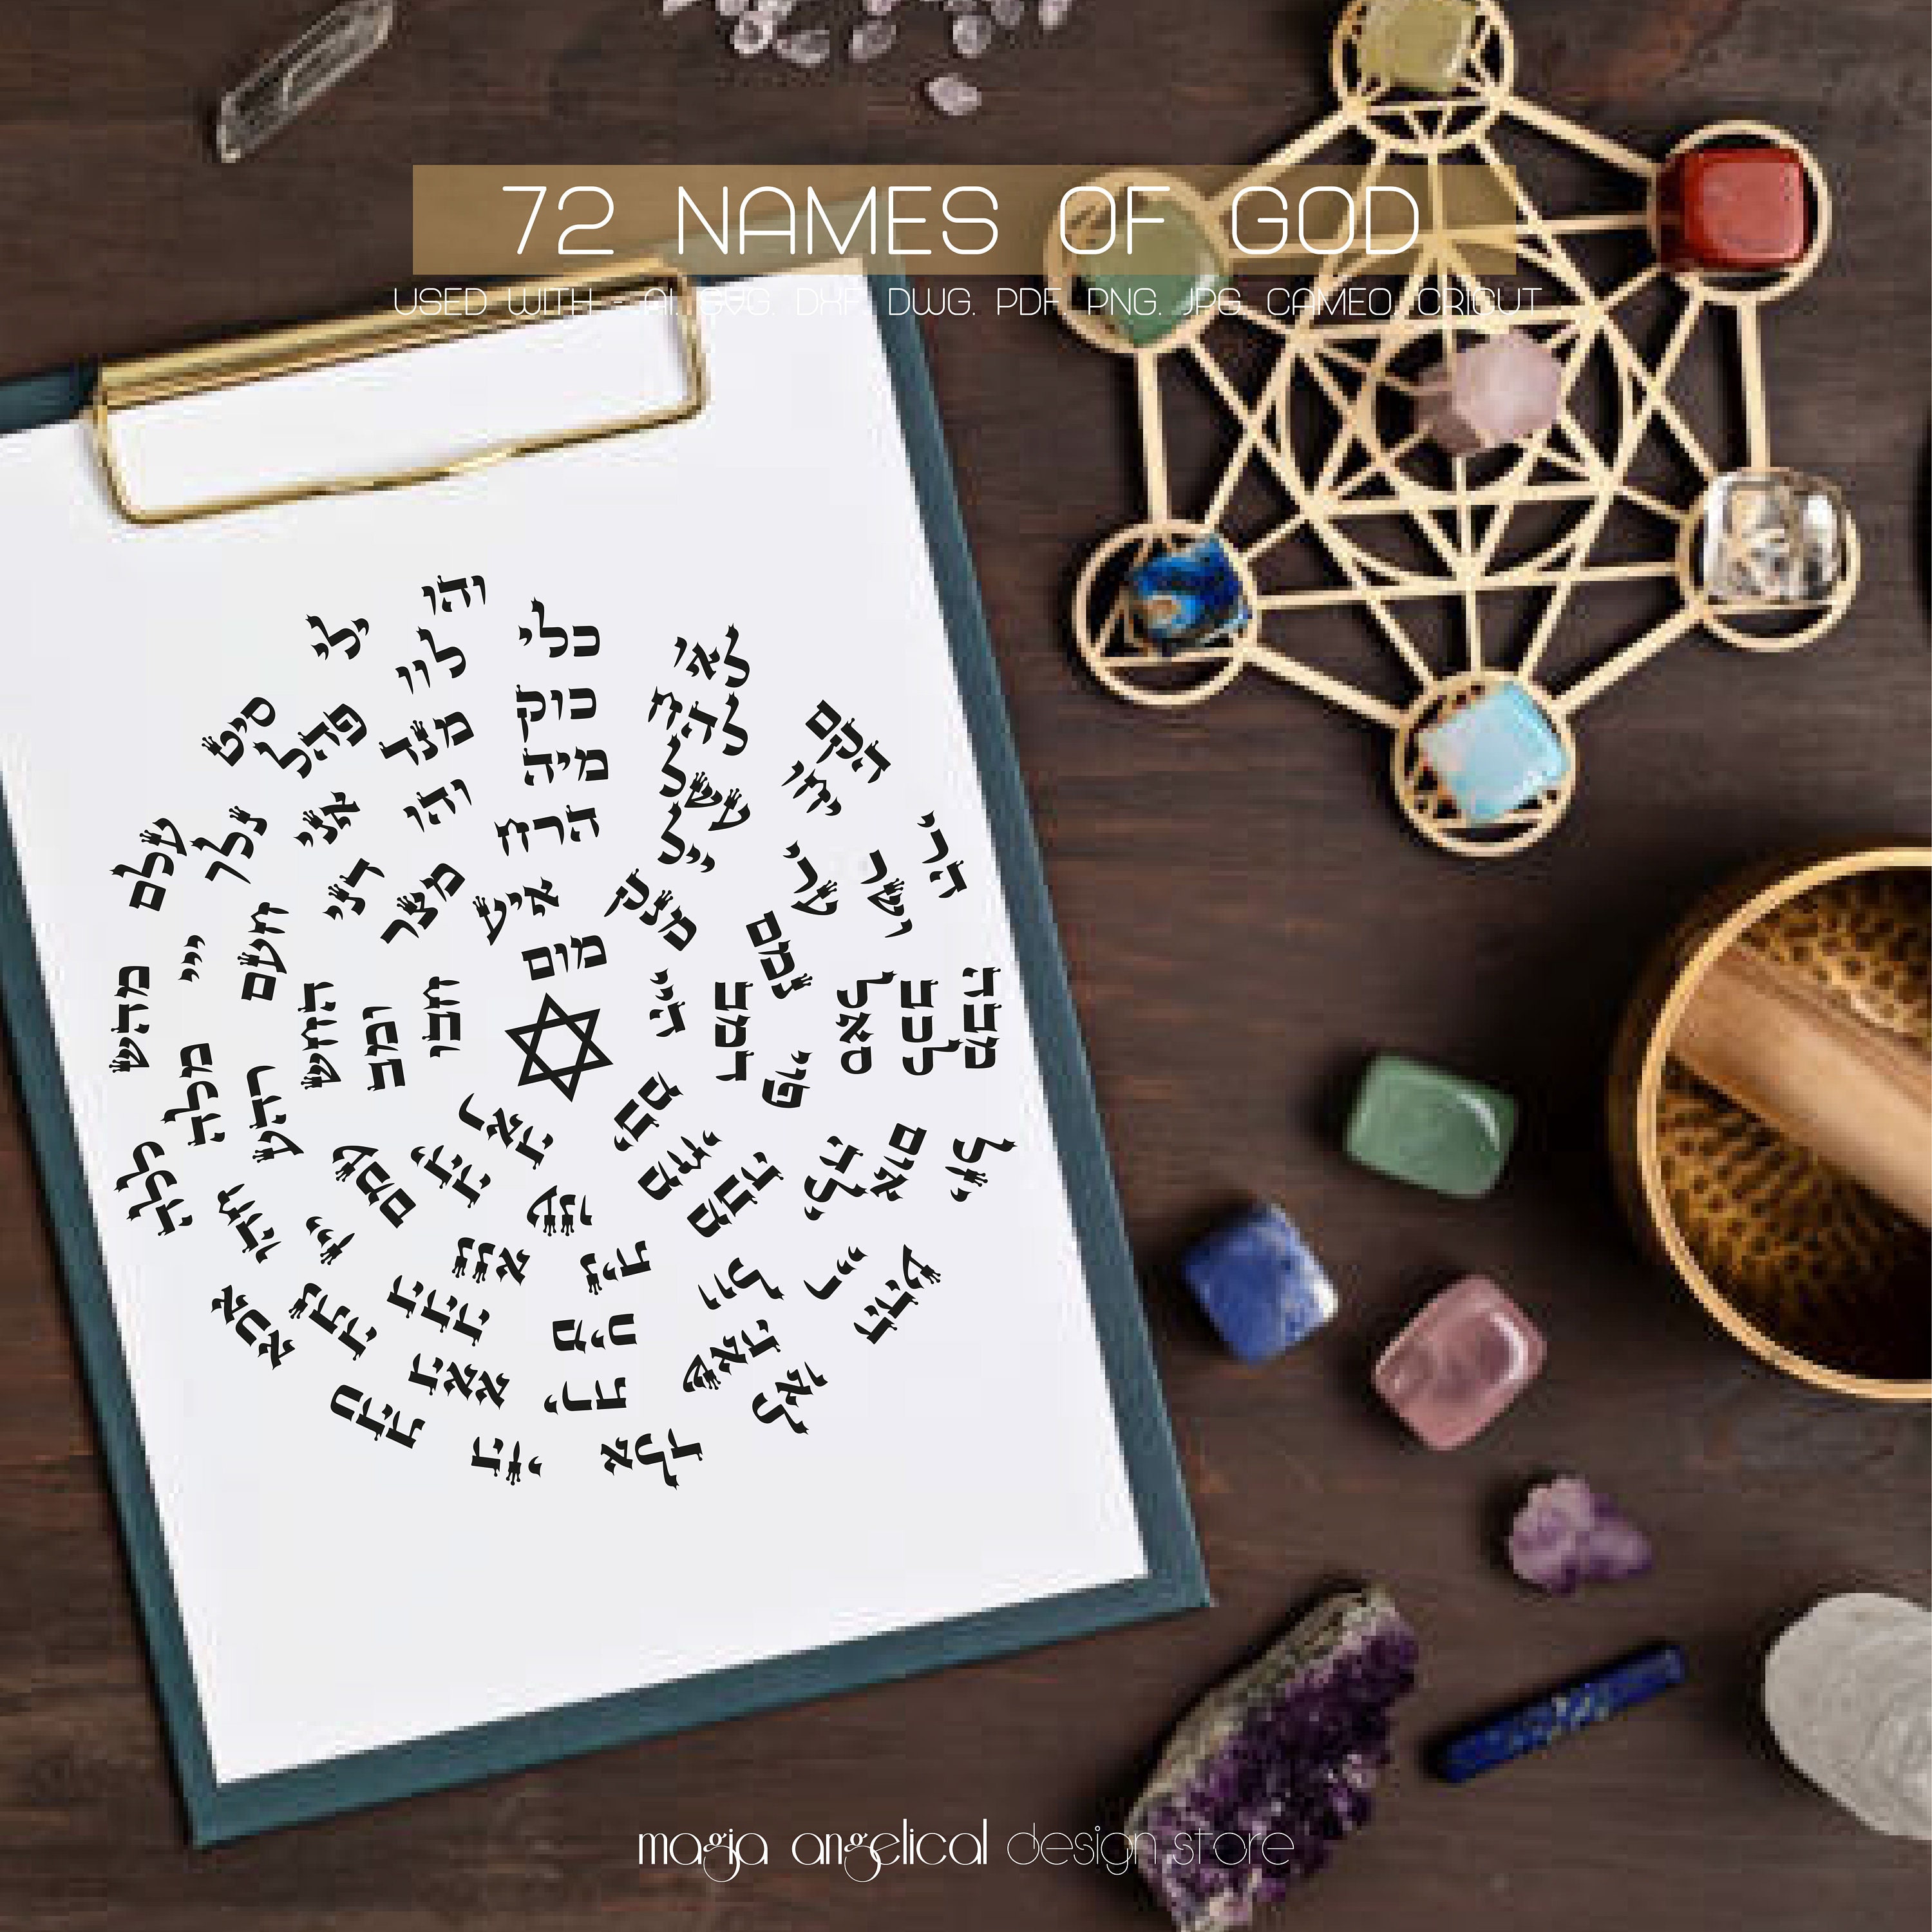 72 NAMES OF GOD
USED WITH - AI. SVG. DXF. DWG. PDF. PNG. JPG. CAMEO. CRICUT
והו
ילי
סיט
עלם
מהש
ללה
אכא
כהת
הזי
אלד
לאו
ההע
יזל
מבה
הרי
הקם
לאו
כלי
לוו
פהל
נלך
ייי
מלה
חהו
נתה
האא
ירת
שאה
ריי
אום
לכב
ושר
יחו
להח
כוק
מנד
אני
חעם
רהע
ייז
ההה
וול
ילה
סאל
ערי
עשל
מיה
והו
דני
החש
עמם
ננא
נית
מבה
פוי
נמם
ייל
הרח
מצר
ומב
יהה
ענו
מחי
דמב
מנק
איע
חבו
ראה
יבם
היי
מום
magia angelical design store